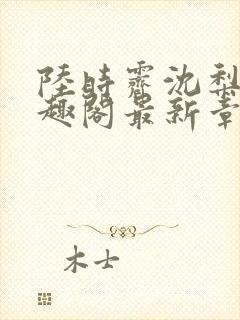 陸時霽沈梨
趣閣最新章
木士